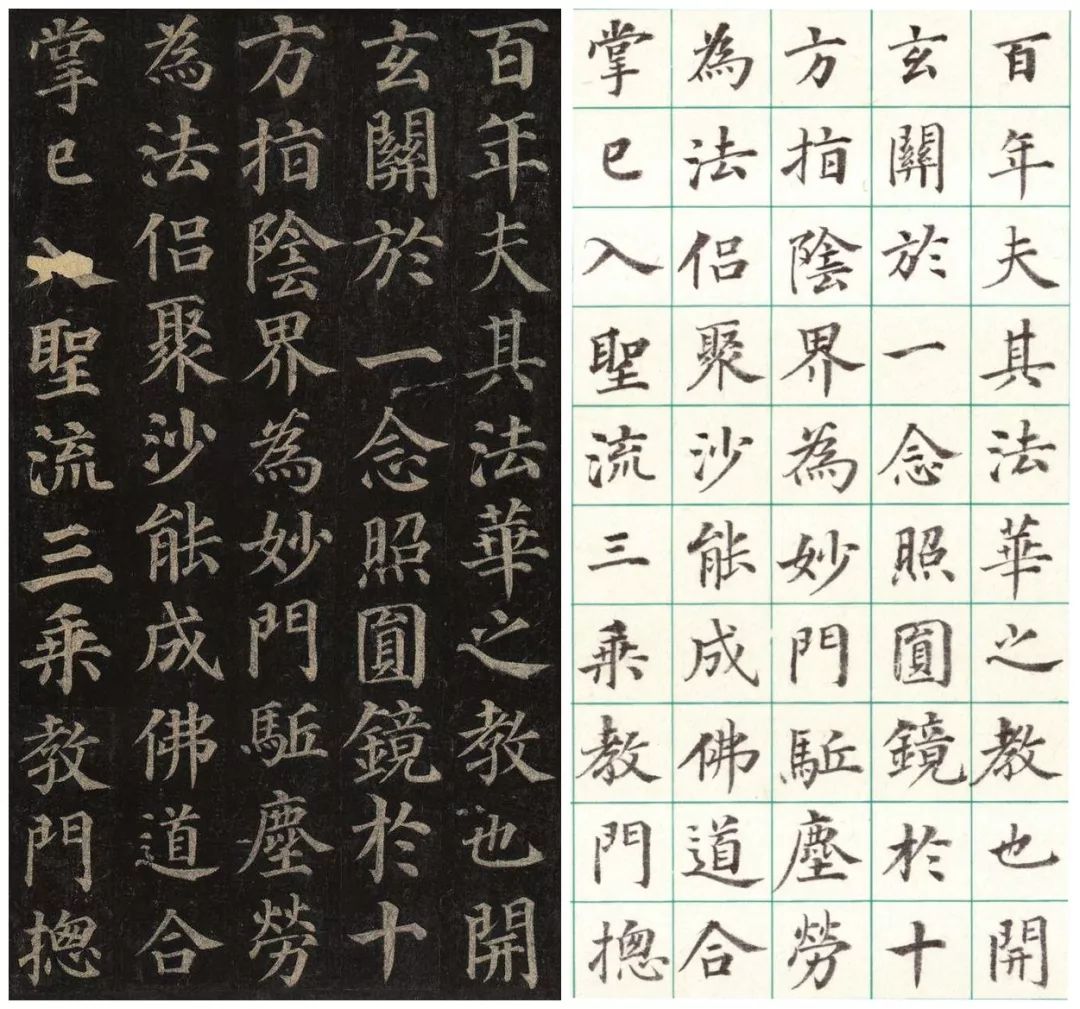 百年夫其法華之教也開
玄關於一念照圓鏡於十
方指陰界為妙門駈塵勞
為法侶聚沙能成佛道合
掌已入聖流三乗教門揔
百年夫其法華之教也開
玄關於一念照圓鏡於十
方指陰界為妙門駈塵勞
為法侶聚沙能成佛道合
掌已入聖流三乗教門揔